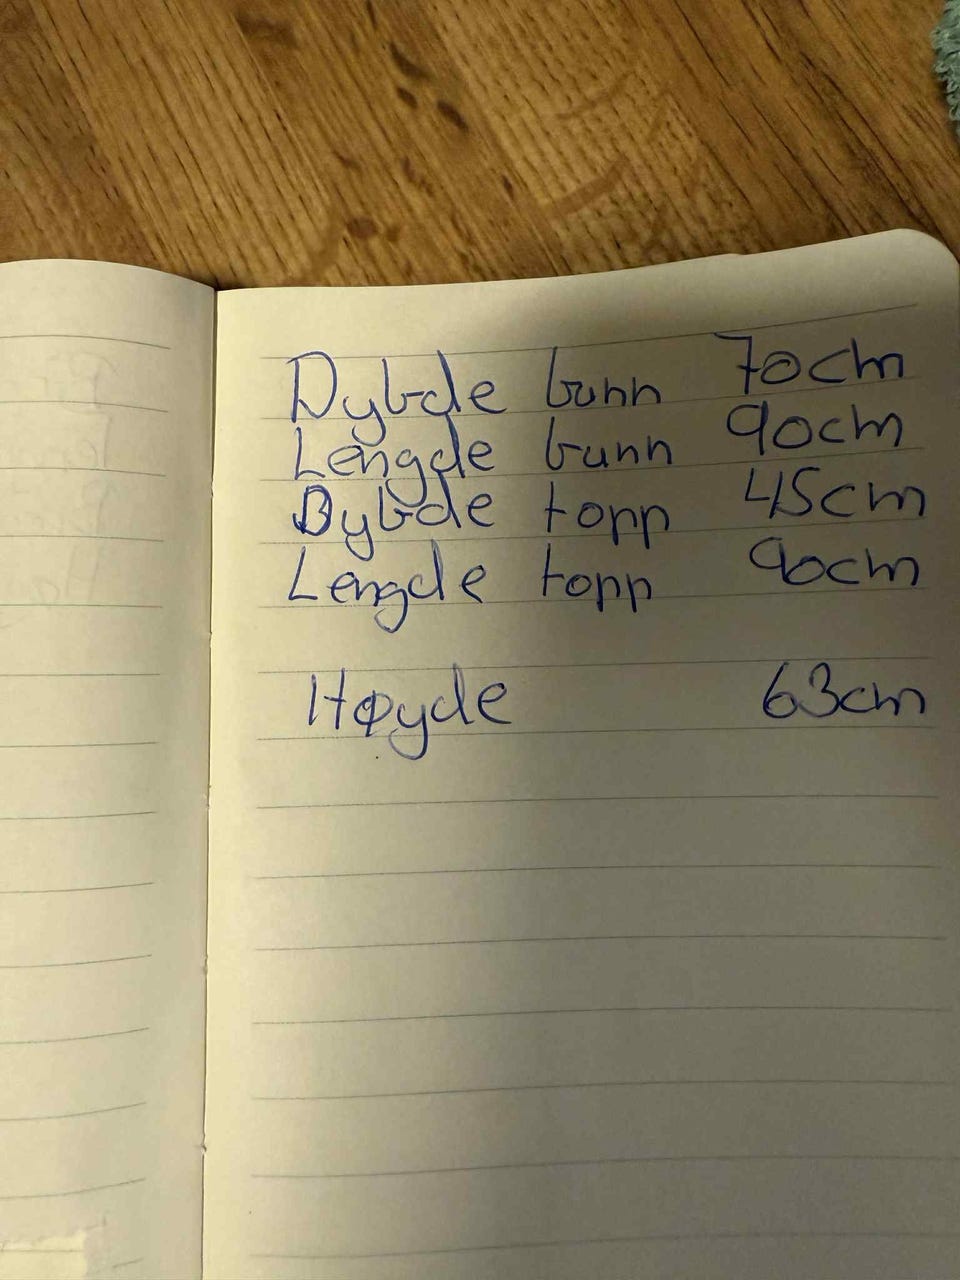 Dybde bunn 70cm
Lengde bunn 90cm
Dybde topp 45cm
Lengde topp 90cm
Høyde 63cm